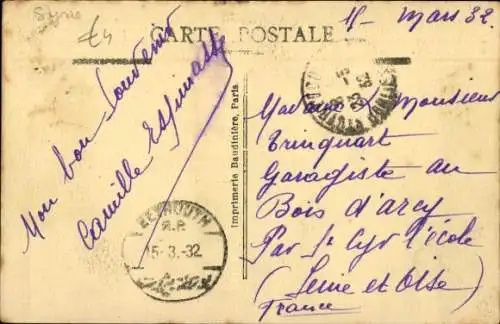 Syrie
£4
CARTE POSTALE
15 - Mars 32.
Mon bon Souvenir
Camille
Imprimerie Baudinière, Paris
BEYROUTH
R.P.
15-3.-32
Madame & Monsieur
Trinquart
Garagiste au
Bois d'arcy
Par St Cyr l'école
(Seine et Oise)
France